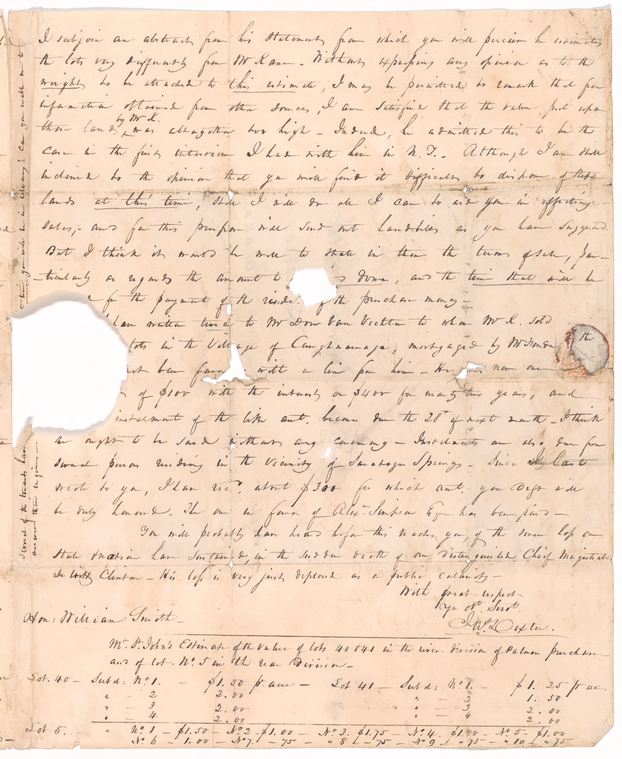 I subjoin an abstract from his Statement from which you will perceive he estimates
the lots very differently from Mr Kane - Without expressing any opinion as to the
weight to be attached to this estimate, I may be permitted to remark that from
information obtained from other sources, I am satisfied that the value put upon
those lands by Mr K. was altogether too high - Indeed, he admitted this to be the
case in the first interview I had with him in N.Y. - Although I am still
inclined to the opinion that you will find it difficult to dispose of these
lands at this time, still I will do all I can to aid you in effecting
sales, - and for this purpose will send out handbills as you have suggested
But I think it would be well to state in them the terms of sale, par-
-ticularly as regards the amount to down, and the time that will be
for the payment of the resid of the purchase money -
written twice to Mr Van Vechten to whom Mr K. sold
lots in the Village of Caughnawaga, mortgaged by Mr
been with a line from him - now one
of $100 with the interest on $400 for nearly two years, and
instalment of the like amt. becomes due the 28th of next month - I think
he ought to be sued without any ceremony - Instalments are also due from
several persons residing in the vicinity of Saratoga Springs - Since I last
wrote to you, I have recd. about $300 for which amt. your Dft will
be duly honored. The one in favor of Alexr. Simpson Esq has been paid -
You will probably have heard before this reaches you of the severe loss our
State & nation have sustained, in the sudden death of our distinguished Chief Magistrate
De Witt Clinton - His loss is very justly deplored as a public calamity -
With great respect
Yr Obt. Servt.
Dexter.
Hon: William Smith -
Mr. St. John's Estimate of the value of lots 40 & 41 in the river Division of Palmer purchase
and of lot No. 5 in the rear Division -
Lot. 40 - Subd: No 1. - $1.50 pr. acre - Lot 41 - Subd: No 1. - $1.25 pr ac.
" - 2 2.00 " - 2 1.50
" - 3 2.00 " - 3 2.00
" 4 2.00 " 4 2.00
Lot 5. - " No. 1 - $1.50 - No 2. $1.00 - No 3. $1.75 - No 4. $1.00 - No 5 - $1.00
No 6 - 1.00 - No 7. - 75 - " 8 - 75 - No 9 - " 75 - " 10 - " 75
several of the tenants have